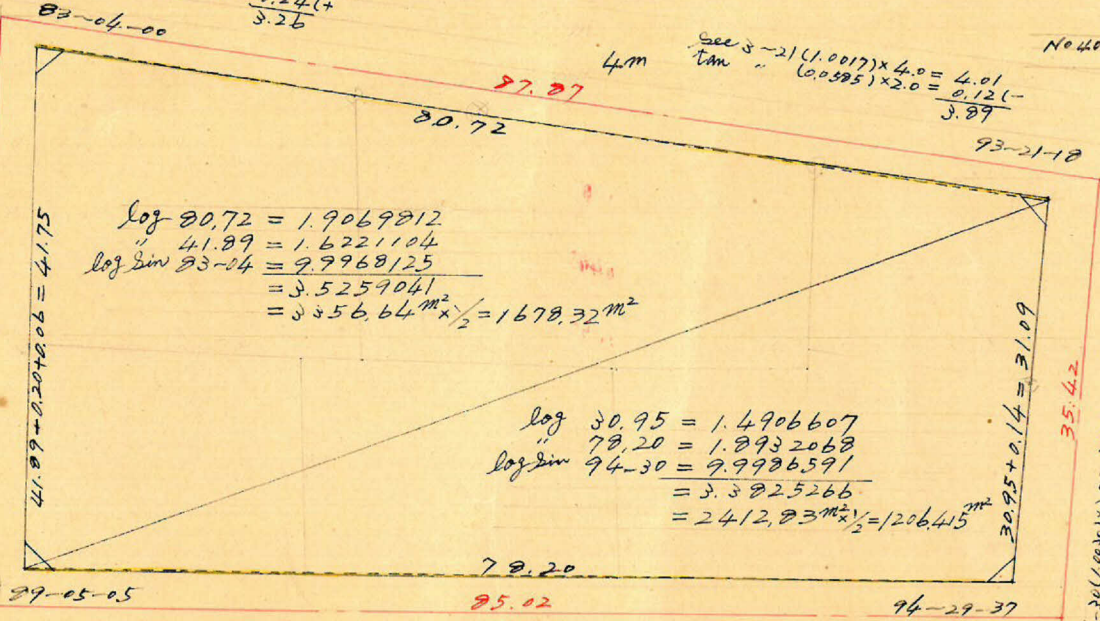 3.26
83-04-00
4m
Sec 3~21(1.0017)×4.0 = 4.01
tan 〃 (0.0585)×2.0 = 0.12(-
3.89
No.40
87.87
80.72
93-21-18
log 80.72 = 1.9069812
〃 41.89 = 1.6221104
log Sin 83-04 = 9.9968125
= 3.5259041
= 3356.64m²×1/2 = 1678.32m²
41.89+0.20+0.06 = 41.75
log 30.95 = 1.4906607
〃 78.20 = 1.8932068
log Sin 94-30 = 9.9986591
= 3.3825266
= 2412.83m²×1/2 = 1206.415m²
30.95+0.14 = 31.09
35.42
78.20
89-05-05
85.02
94-29-37